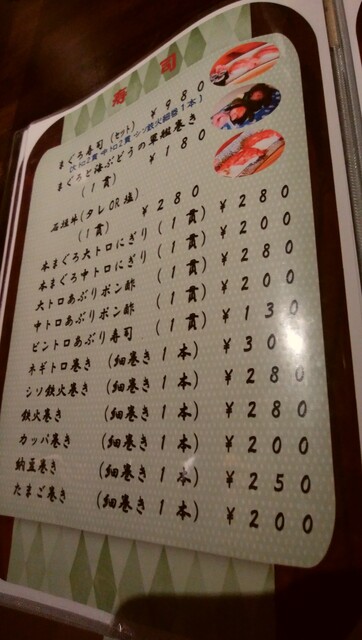 寿司
まぐろ寿司(セット) ¥980
(大トロ2貫 中トロ2貫 シソ鉄火細巻1本)
まぐろと海ぶどうの軍艦巻き
(1貫) ¥180
石垣牛(タレOR塩)
(1貫) ¥280
本まぐろ大トロにぎり(1貫) ¥280
本まぐろ中トロにぎり(1貫) ¥200
大トロあぶりポン酢(1貫) ¥280
中トロあぶりポン酢(1貫) ¥200
ビントロあぶり寿司(1貫) ¥130
ネギトロ巻き(細巻き1本) ¥300
シソ鉄火巻き(細巻き1本) ¥280
鉄火巻き(細巻き1本) ¥280
カッパ巻き(細巻き1本) ¥200
納豆巻き(細巻き1本) ¥250
たまご巻き(細巻き1本) ¥200